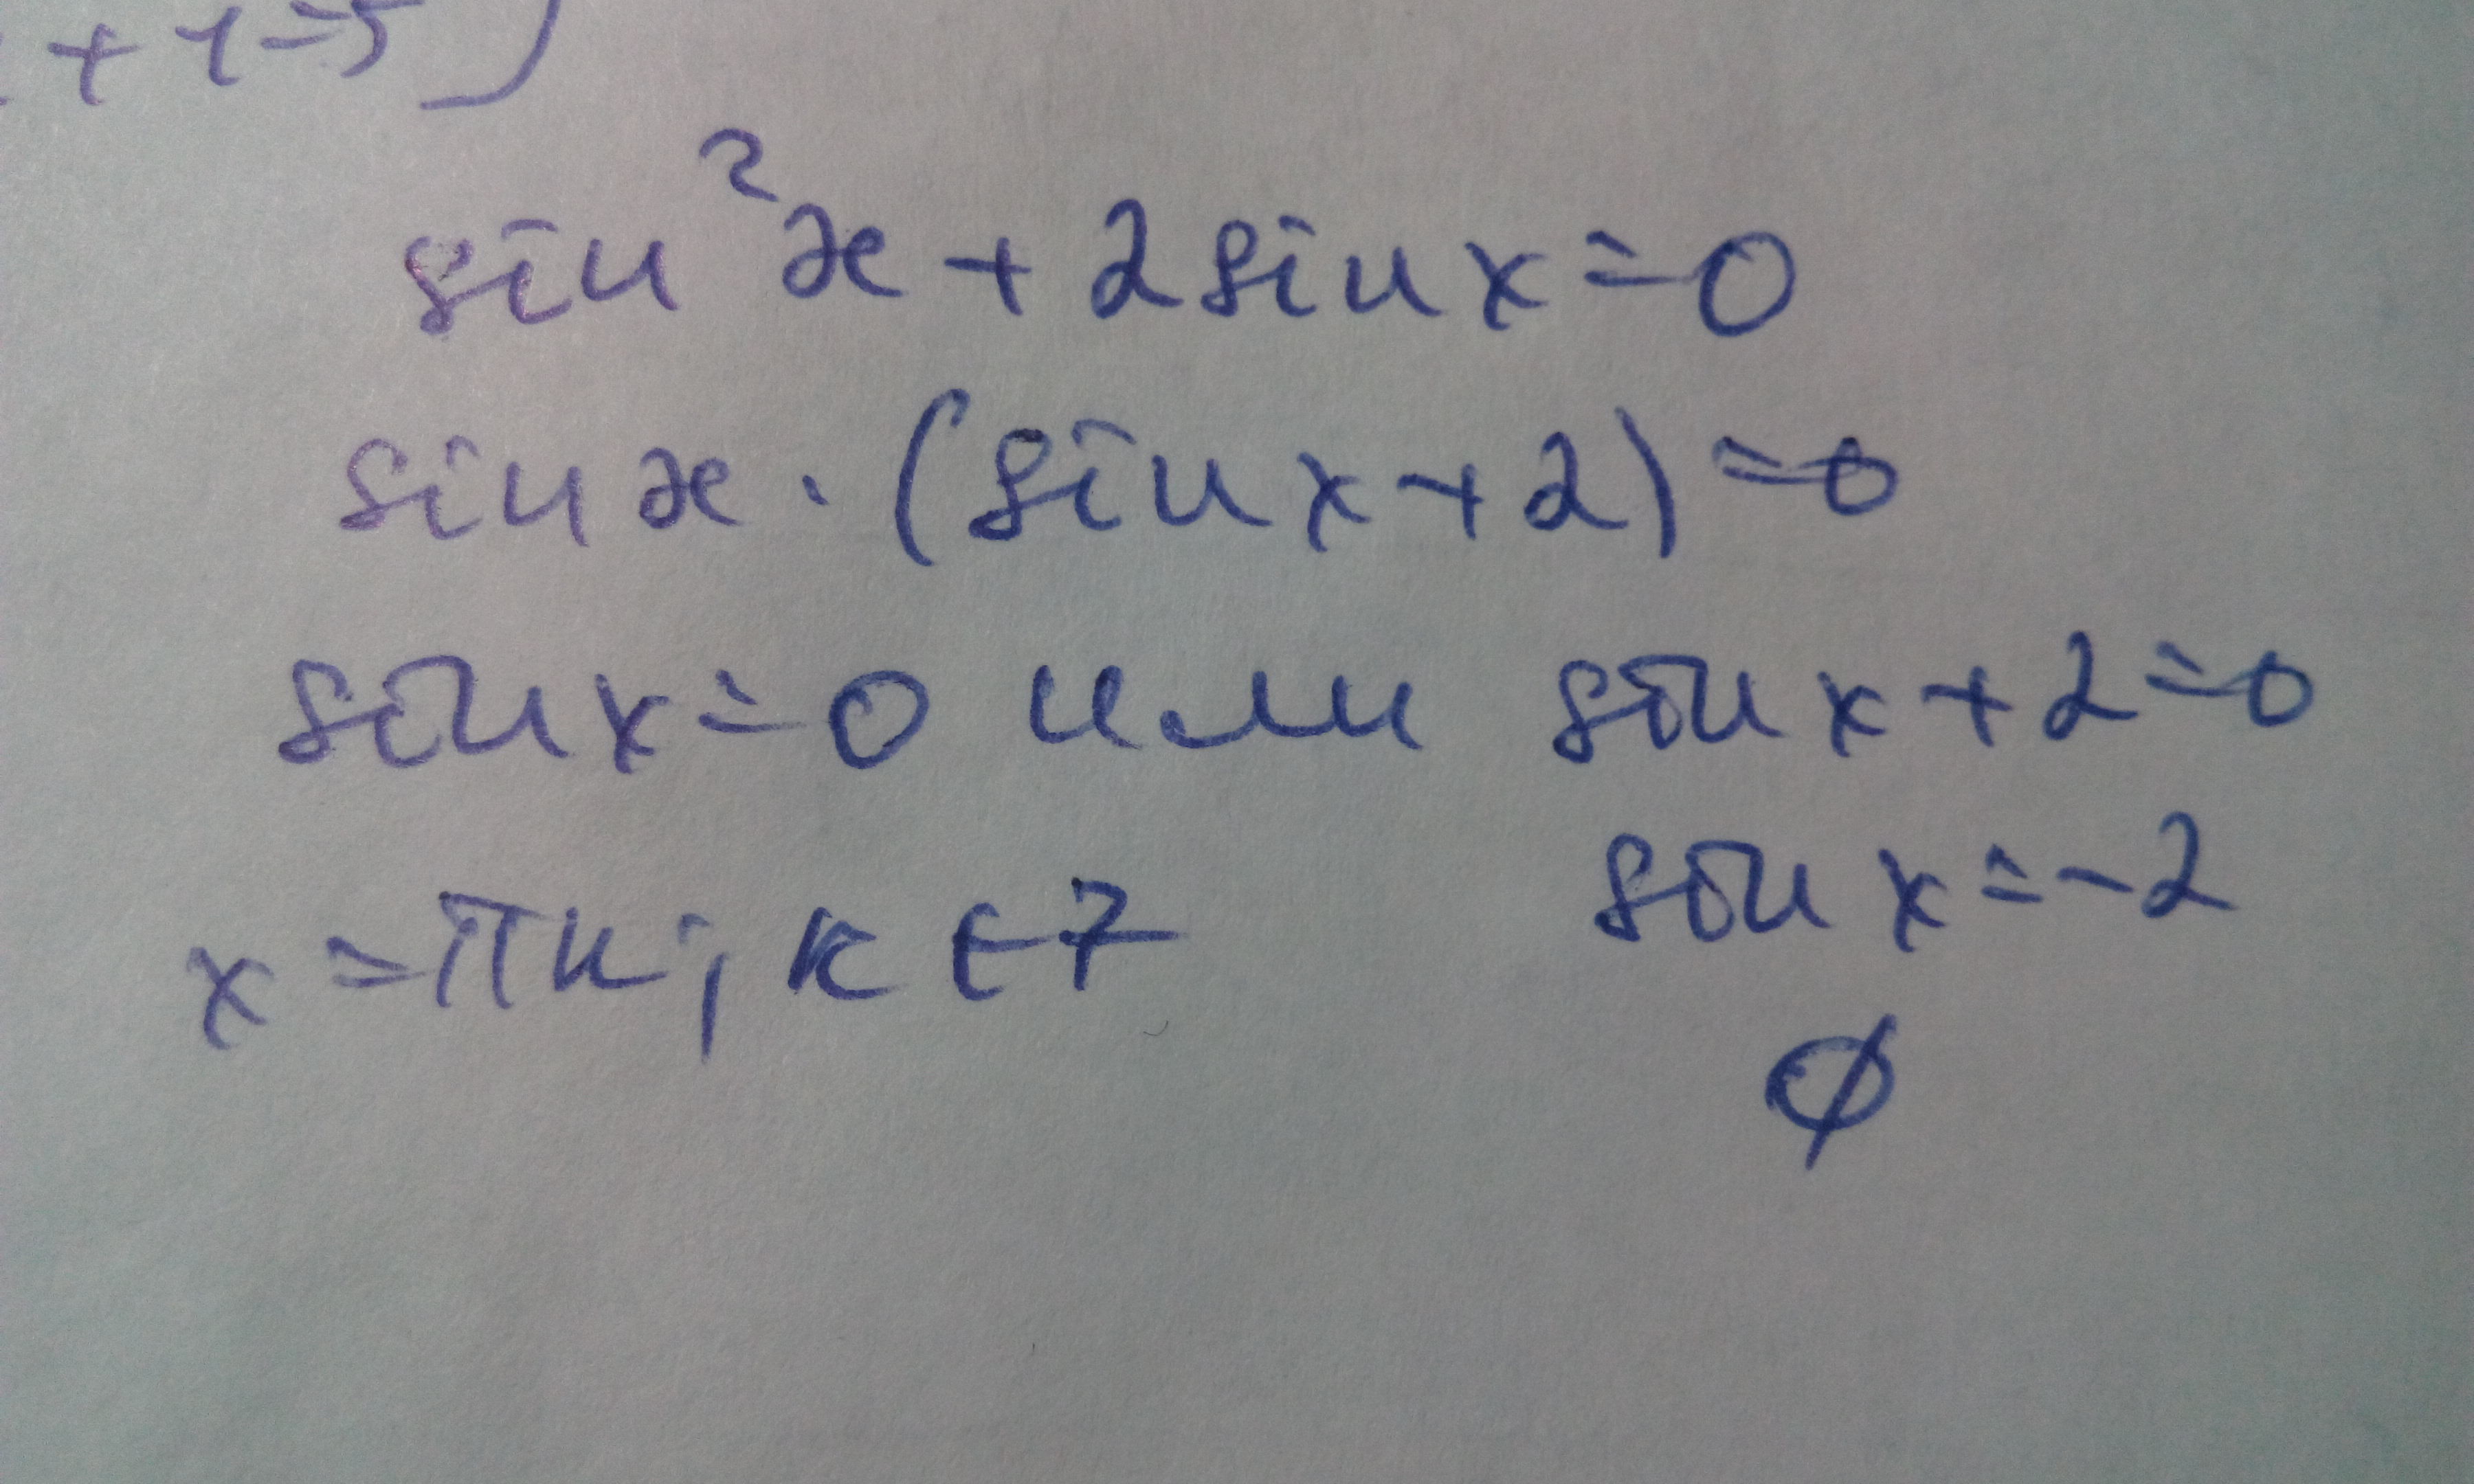 + 4 = 5
sin²x + 2 sin x = 0
sin x · (sin x + 2) = 0
sin x = 0 или sin x + 2 = 0
sin x = -2
x = πк; к ∈ Z
∅